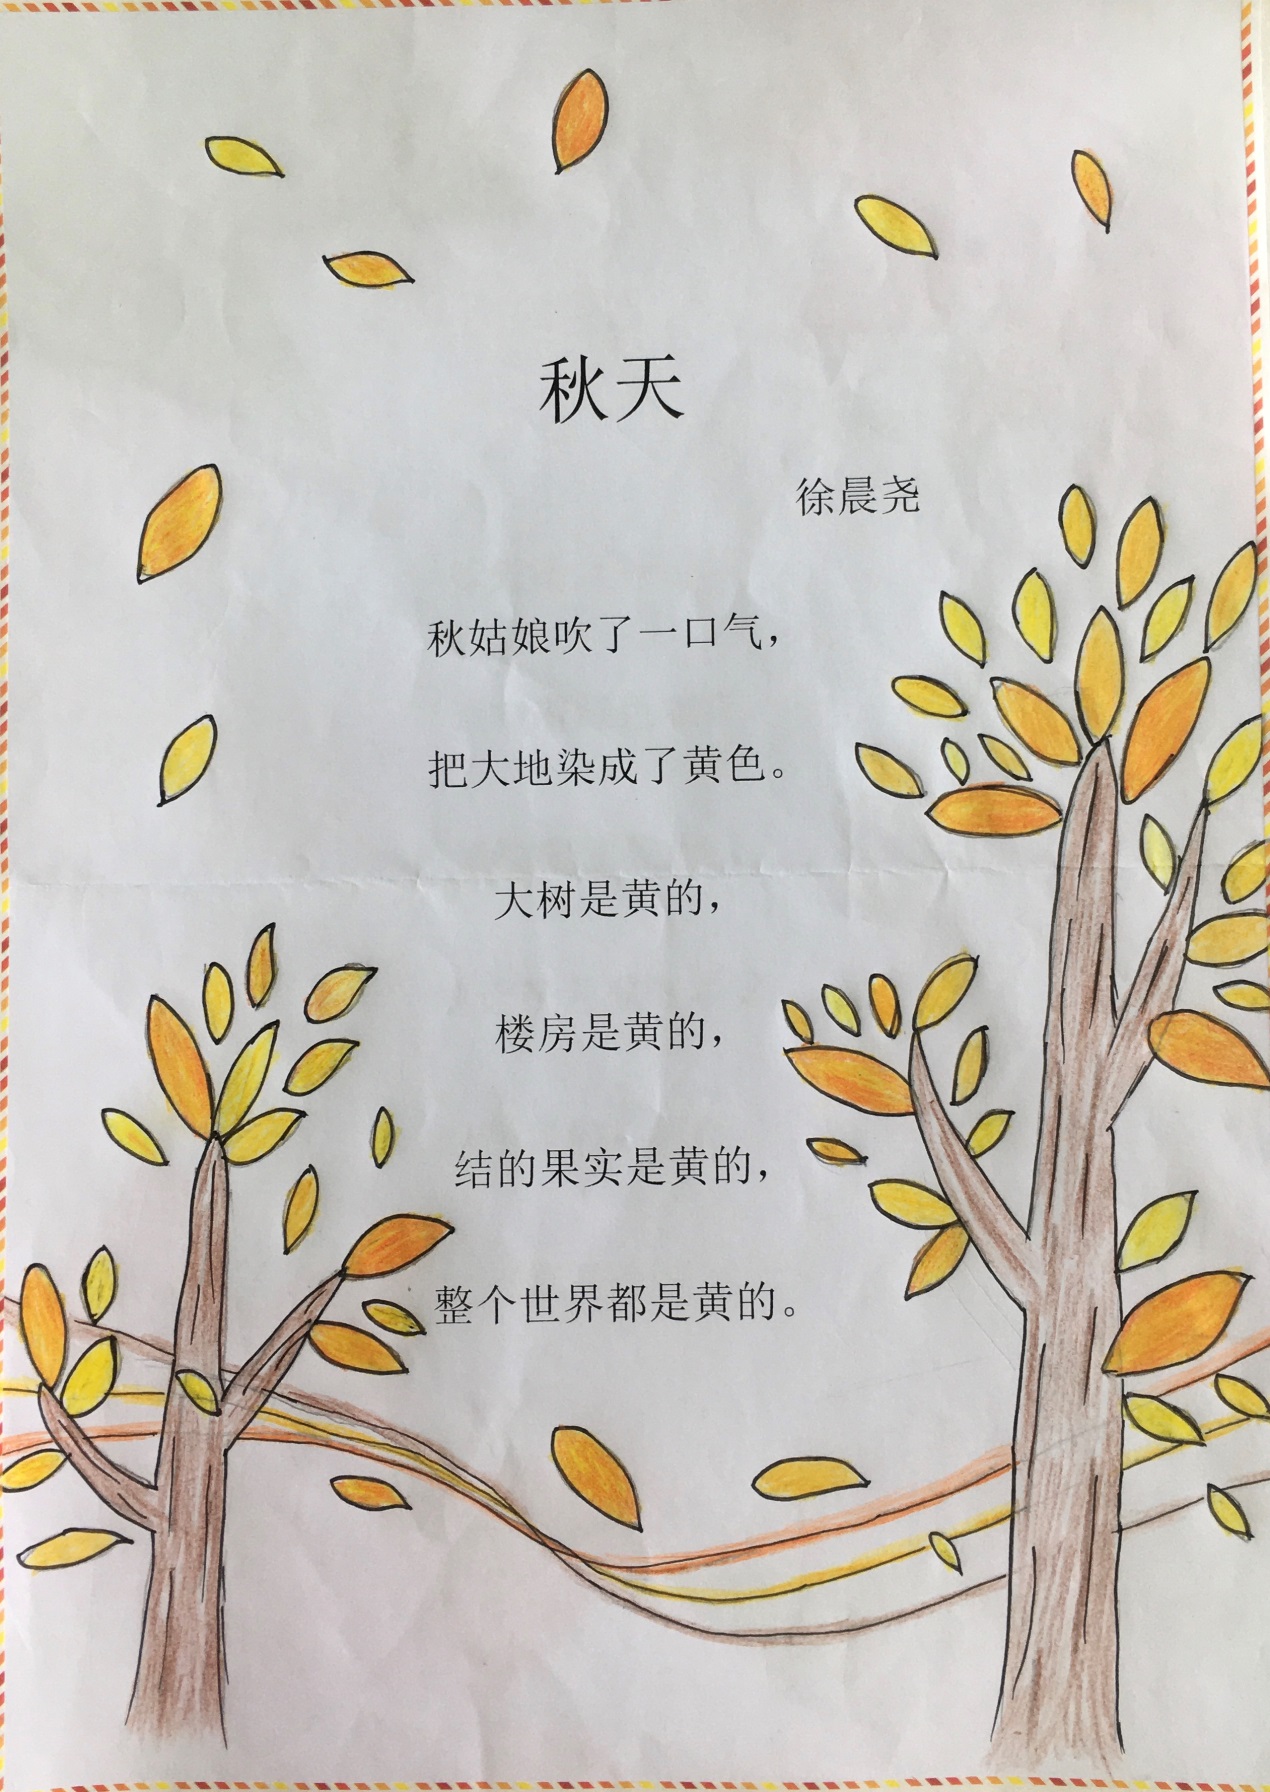 秋天
徐晨尧
秋姑娘吹了一口气，
把大地染成了黄色。
大树是黄的，
楼房是黄的，
结的果实是黄的，
整个世界都是黄的。